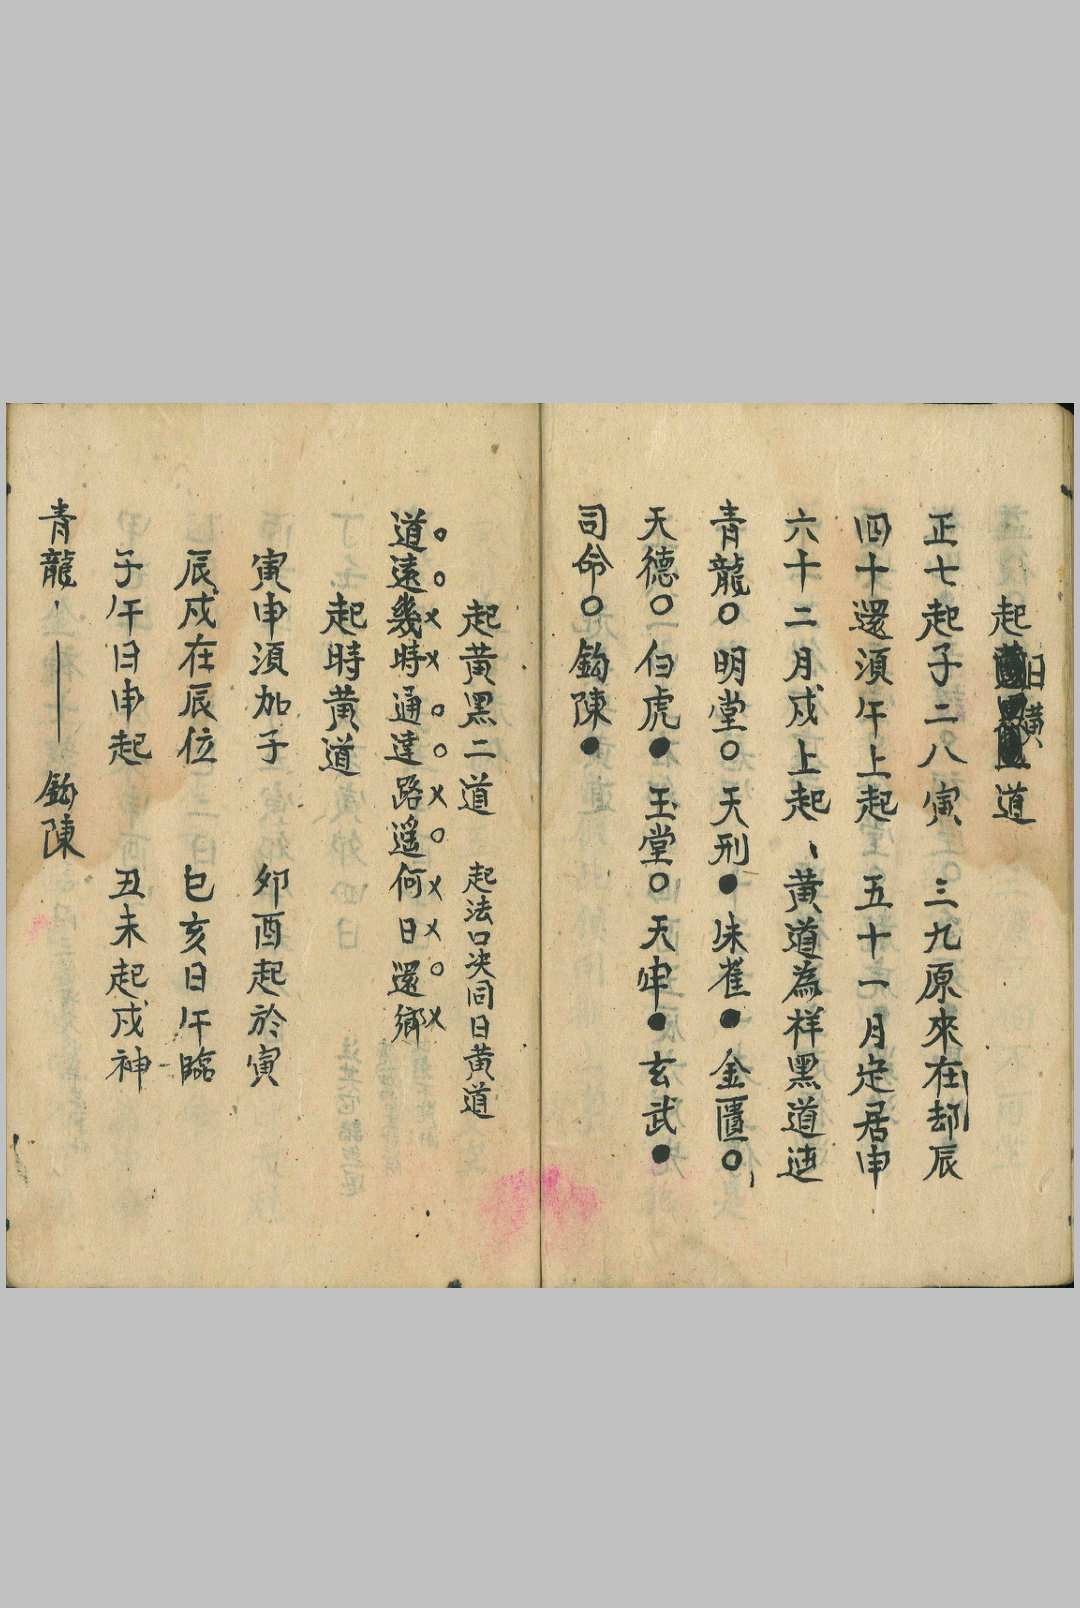 起日黃道
正七起子二八寅 三九原來在却辰
四十還須午上起 五十一月定居申
六十二月戍上起、黃道為祥黑道
青龍○明堂○天刑●朱雀●金匱○
天德○白虎●玉堂○天牢●玄武●
司命○鈎陳●
起黃黑二道 起法口决同日黃道
道遠幾時通達路遥何日還鄉
○○××○○×○××○×
起時黃道
寅申須加子 夘酉起於寅
辰戍在辰位 巳亥日午臨
子午日申起 丑未起戍神
青龍、—— 鈎陳